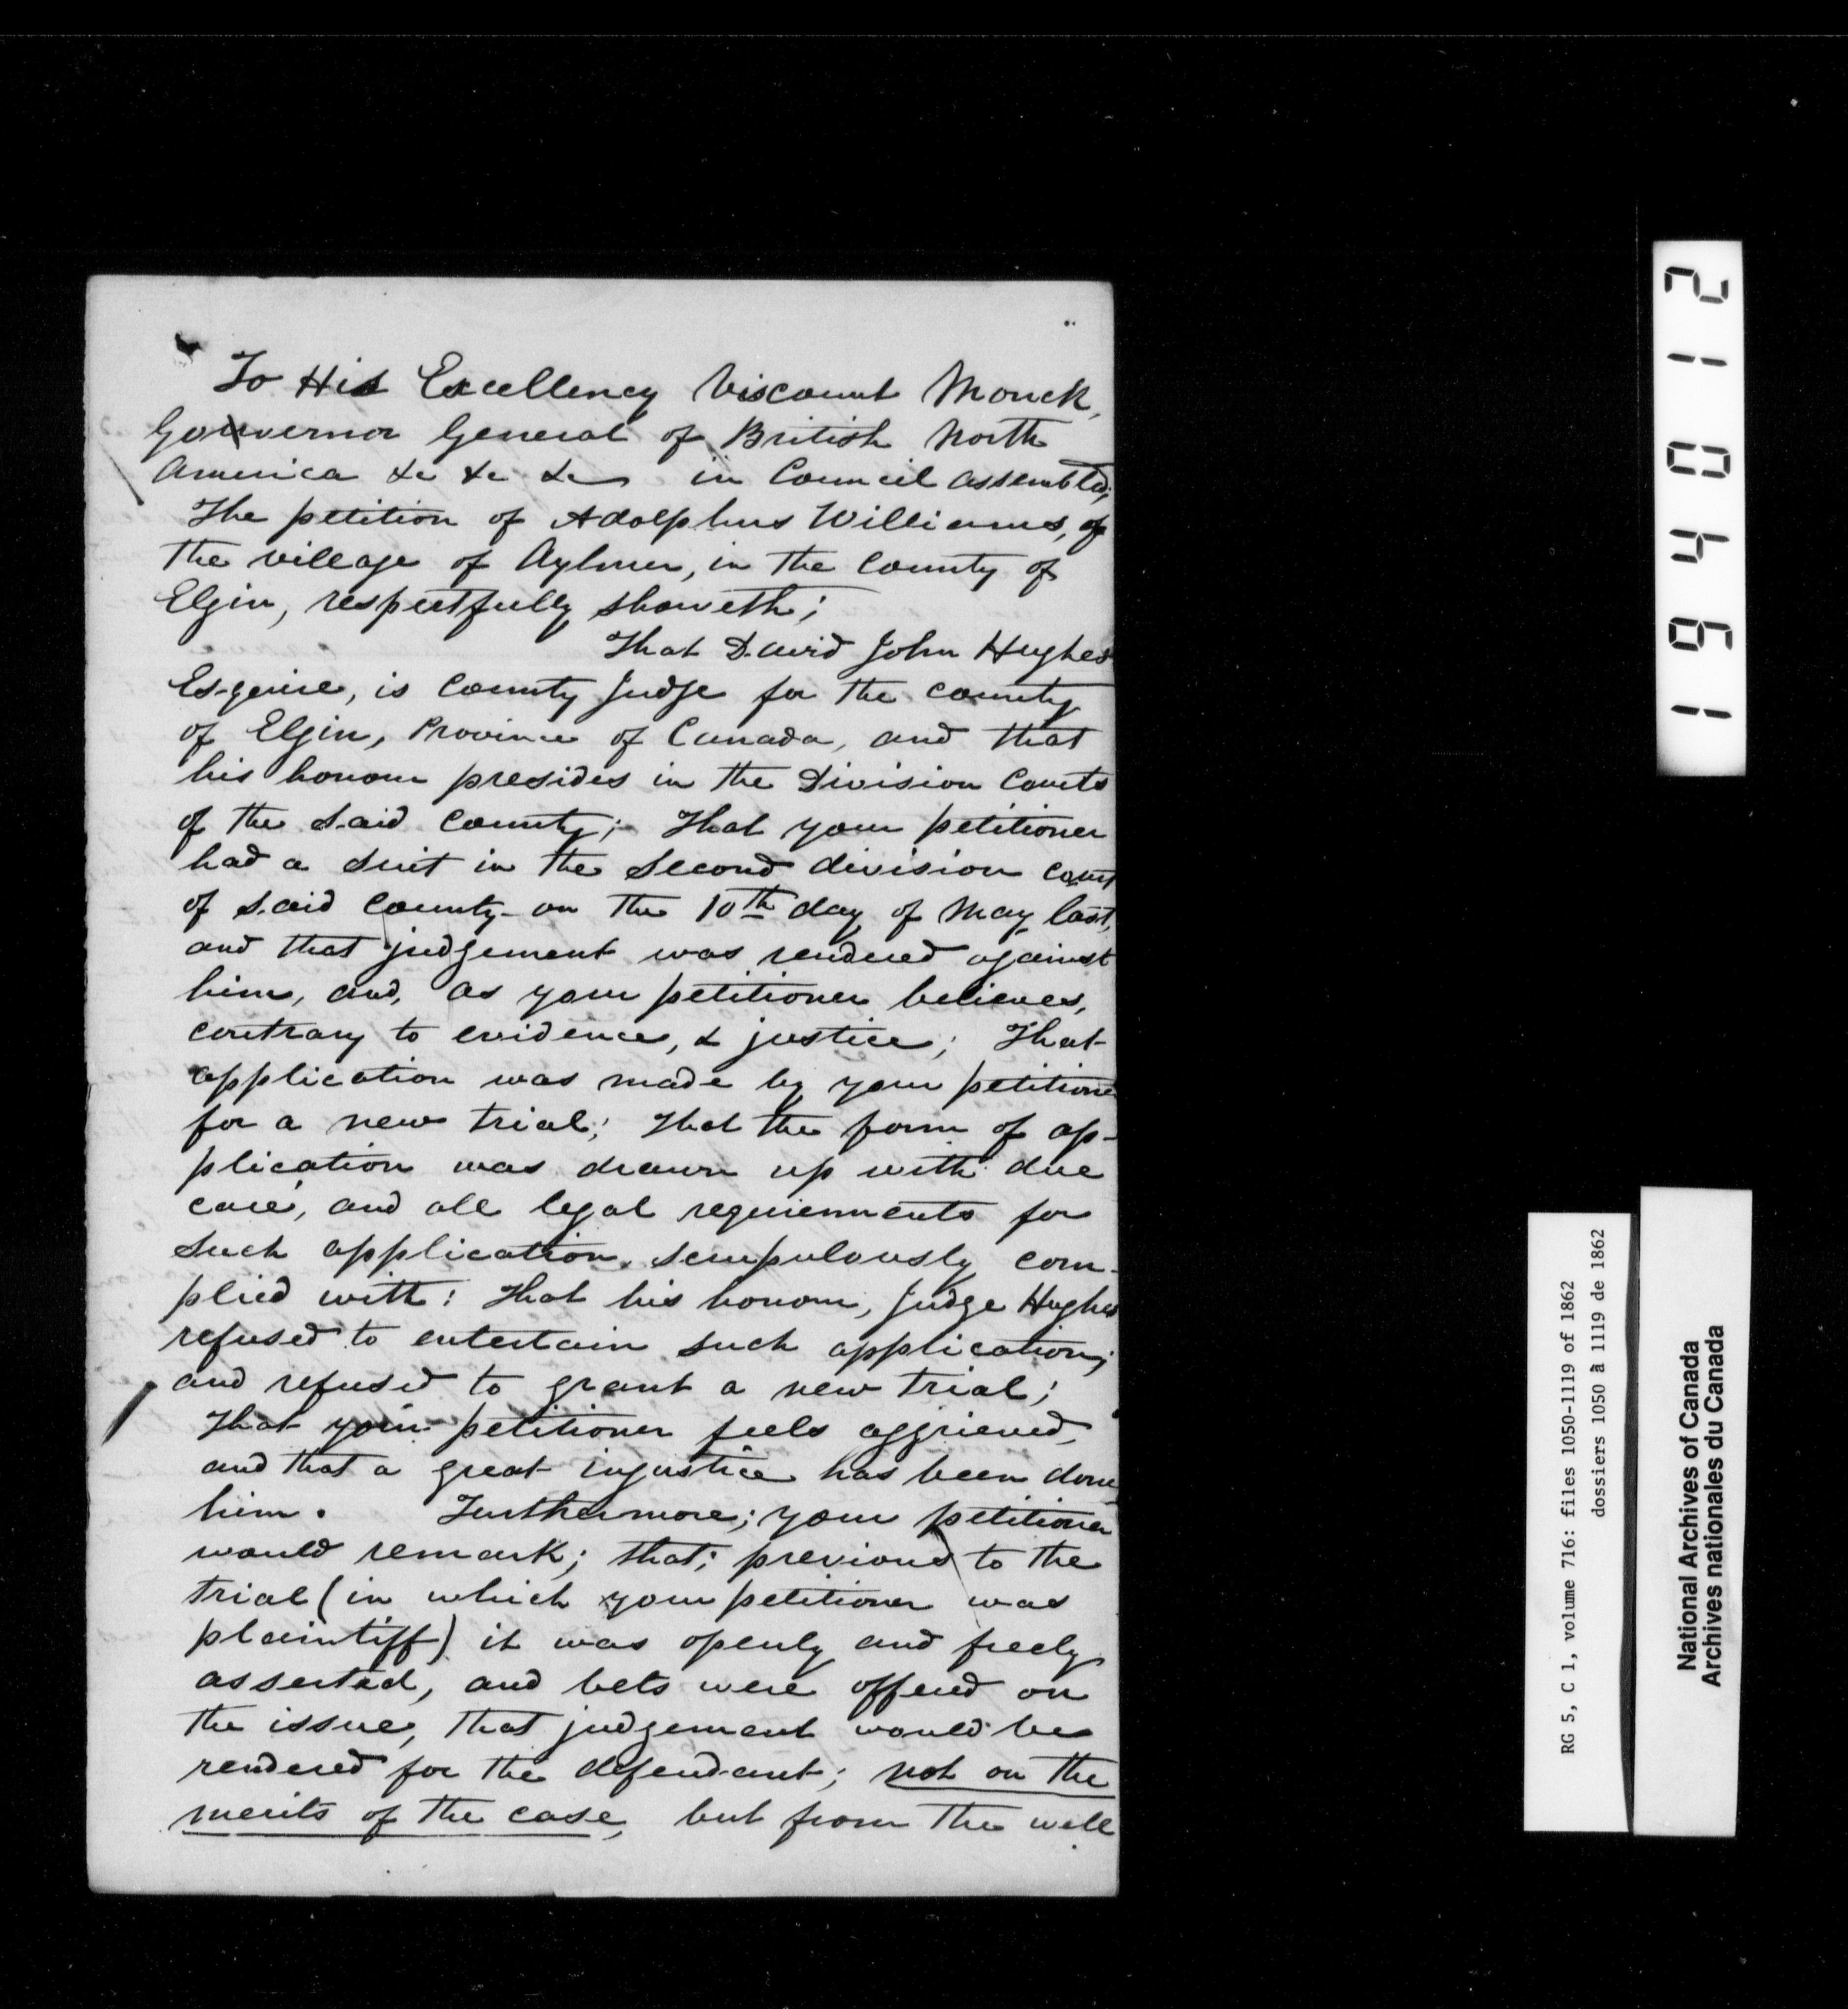 To His Excellency Viscount Monck,
Governor General of British North
America &c &c &c in Council assembled;
The petition of Adolphus Williams, of
the village of Aylmer, in the County of
Elgin, respectfully showeth;
That David John Hughes
Esquire, is County Judge for the county
of Elgin, Province of Canada, and that
his honour presides in the Division Courts
of the said County; That your petitioner
had a suit in the second division court
of said County on the 10th day of May last,
and that judgement was rendered against
him, and, as your petitioner believes,
contrary to evidence, & justice; That
application was made by your petitioner
for a new trial; That the form of ap-
plication was drawn up with due
care, and all legal requirements for
such application scrupulously com-
plied with: That his honour, Judge Hughes
refused to entertain such application;
and refused to grant a new trial;
That your petitioner feels aggrieved,
and that a great injustice has been done
him. Furthermore; your petitioner
would remark; that; previous to the
trial (in which your petitioner was
plaintiff) it was openly and freely
asserted, and bets were offered on
the issue, that judgement would be
rendered for the defendant; not on the
merits of the case, but from the well
194012
RG 5, C 1, volume 716: files 1050-1119 of 1862
dossiers 1050 à 1119 de 1862
National Archives of Canada
Archives nationales du Canada